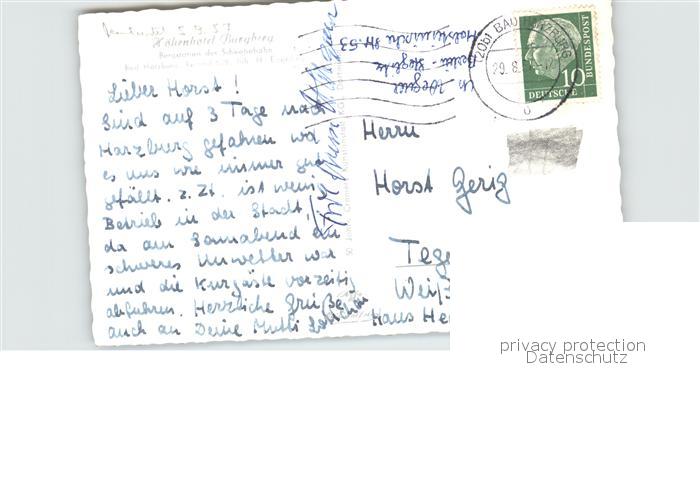 Höhenhotel Burgberg
Bergstation der Schwebebahn
Lieber Horst!
Sind auf 3 Tage nach
Harzburg gefahren wo
es uns wie immer gut
gefällt. z. Zt. ist wenig
Betrieb in der Stadt,
da am Sonnabend ein
schweres Unwetter war
und die Kurgäste vorzeitig
abfuhren. Herzliche Grüße
auch an Deine Mutti
Wegner
Berlin-Steglitz
Holsteinische Str. 53
(20b) BAD HARZBURG
29.8.
10
DEUTSCHE
BUNDESPOST
Herrn
Horst Gerig
Tege
Weiß
Haus He
privacy protection
Datenschutz